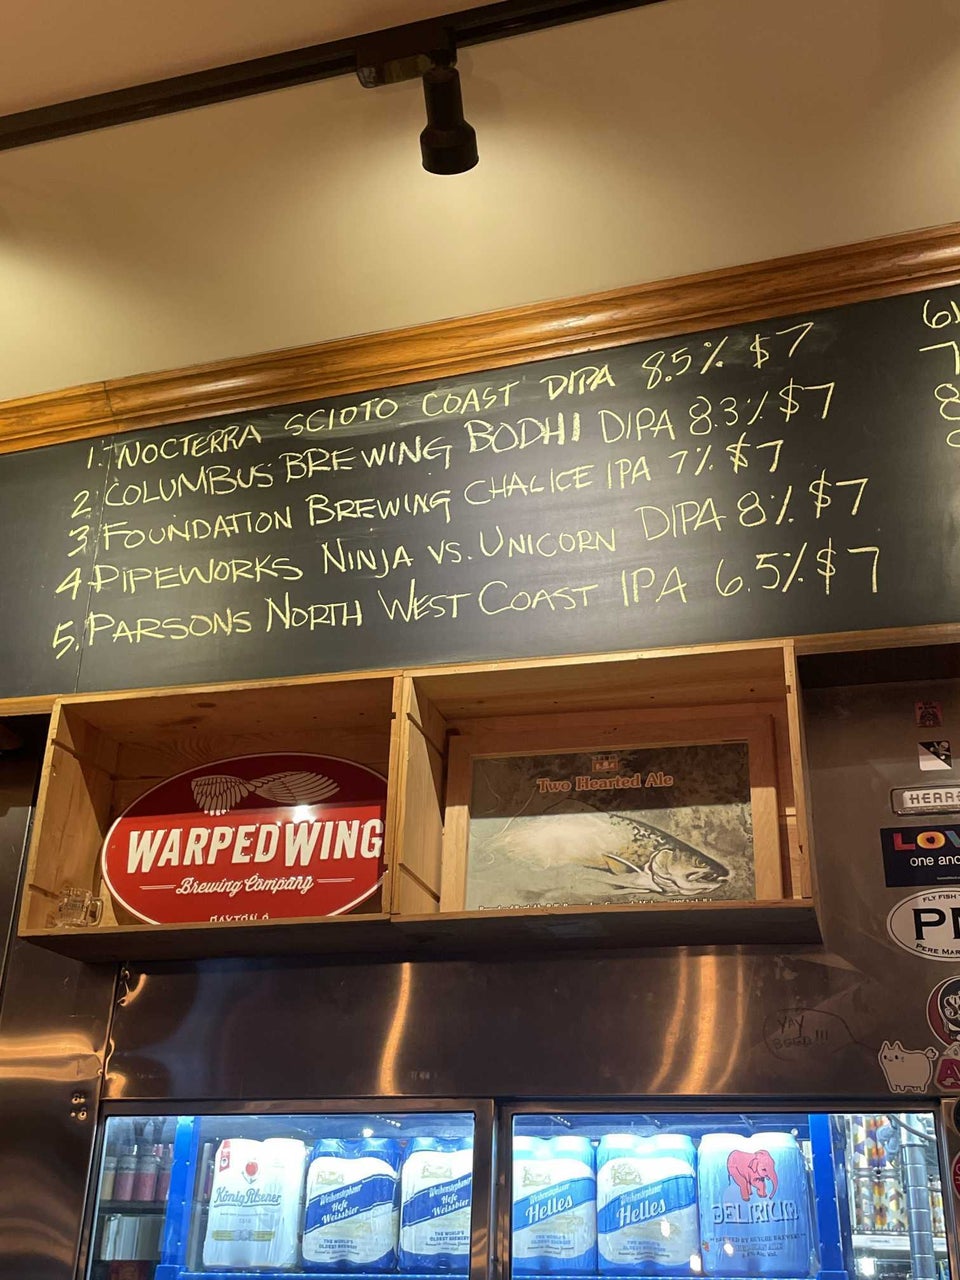 1. NOCTERRA SCIOTO COAST DIPA 8.5% $7
2 COLUMBUS BREWING BODHI DIPA 8.3% $7
3 FOUNDATION BREWING CHALICE IPA 7% $7
4 PIPEWORKS NINJA VS. UNICORN DIPA 8% $7
5. PARSONS NORTH WEST COAST IPA 6.5% $7
6.
7
8
WARPED WING
Brewing Company
DAYTON
Two Hearted Ale
HERR
LOV
one and
FLY FISH
PERE MAR
YAY
BEER!!!
König Pilsener
Weihenstephaner
Hefe
Weissbier
THE WORLD'S
OLDEST BREWERY
Weihenstephaner
Hefe
Weissbier
THE WORLD'S
OLDEST BREWERY
Weihenstephaner
Helles
THE WORLD'S
OLDEST BREWERY
Weihenstephaner
Helles
THE WORLD'S
OLDEST BREWERY
DELIRIUM